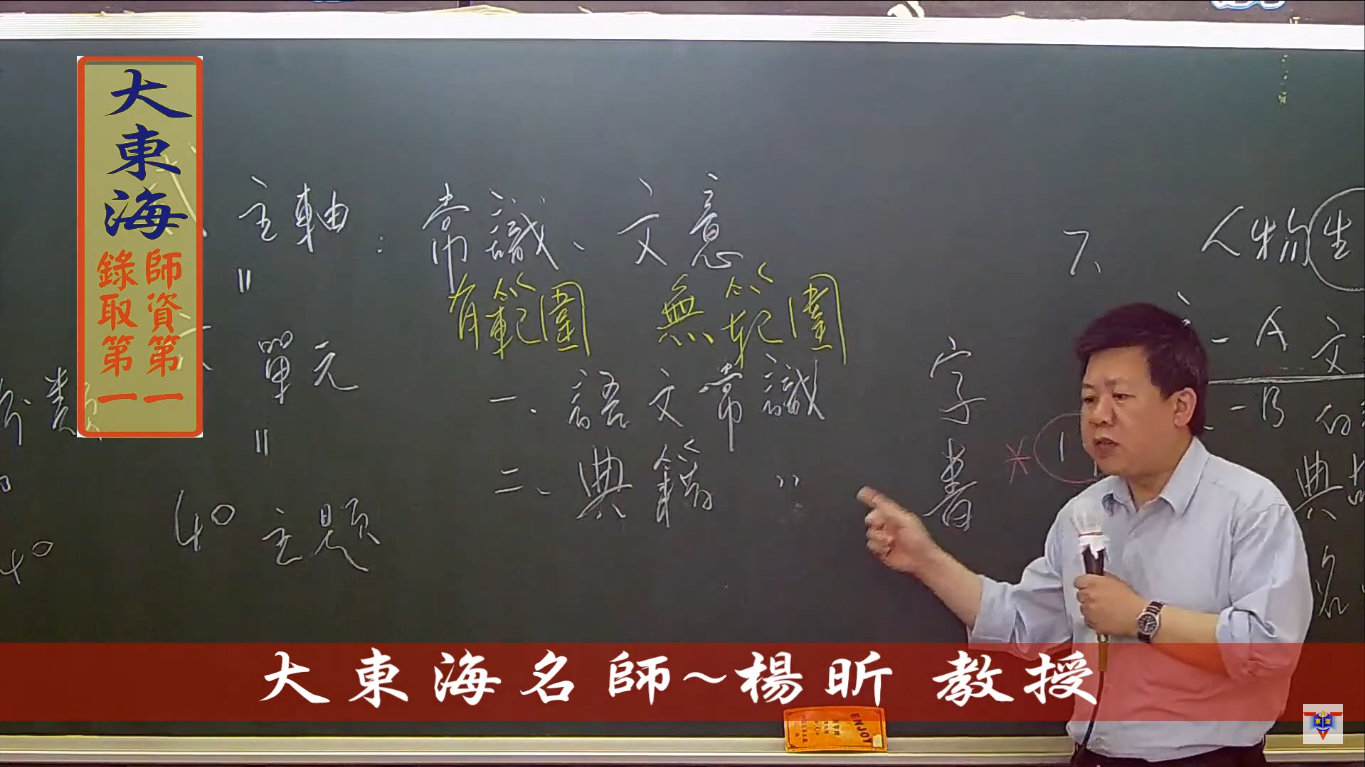 大東海
師資第一
錄取第一
主軸：常識、文意
〃
有範圍 無範圍
單元
一、語文常識
〃
二、典籍 〃
4° 主題
字
書
類
4°
7、人物生
-A 文
-B
典故
名
大東海名師~楊昕 教授
ENJOY